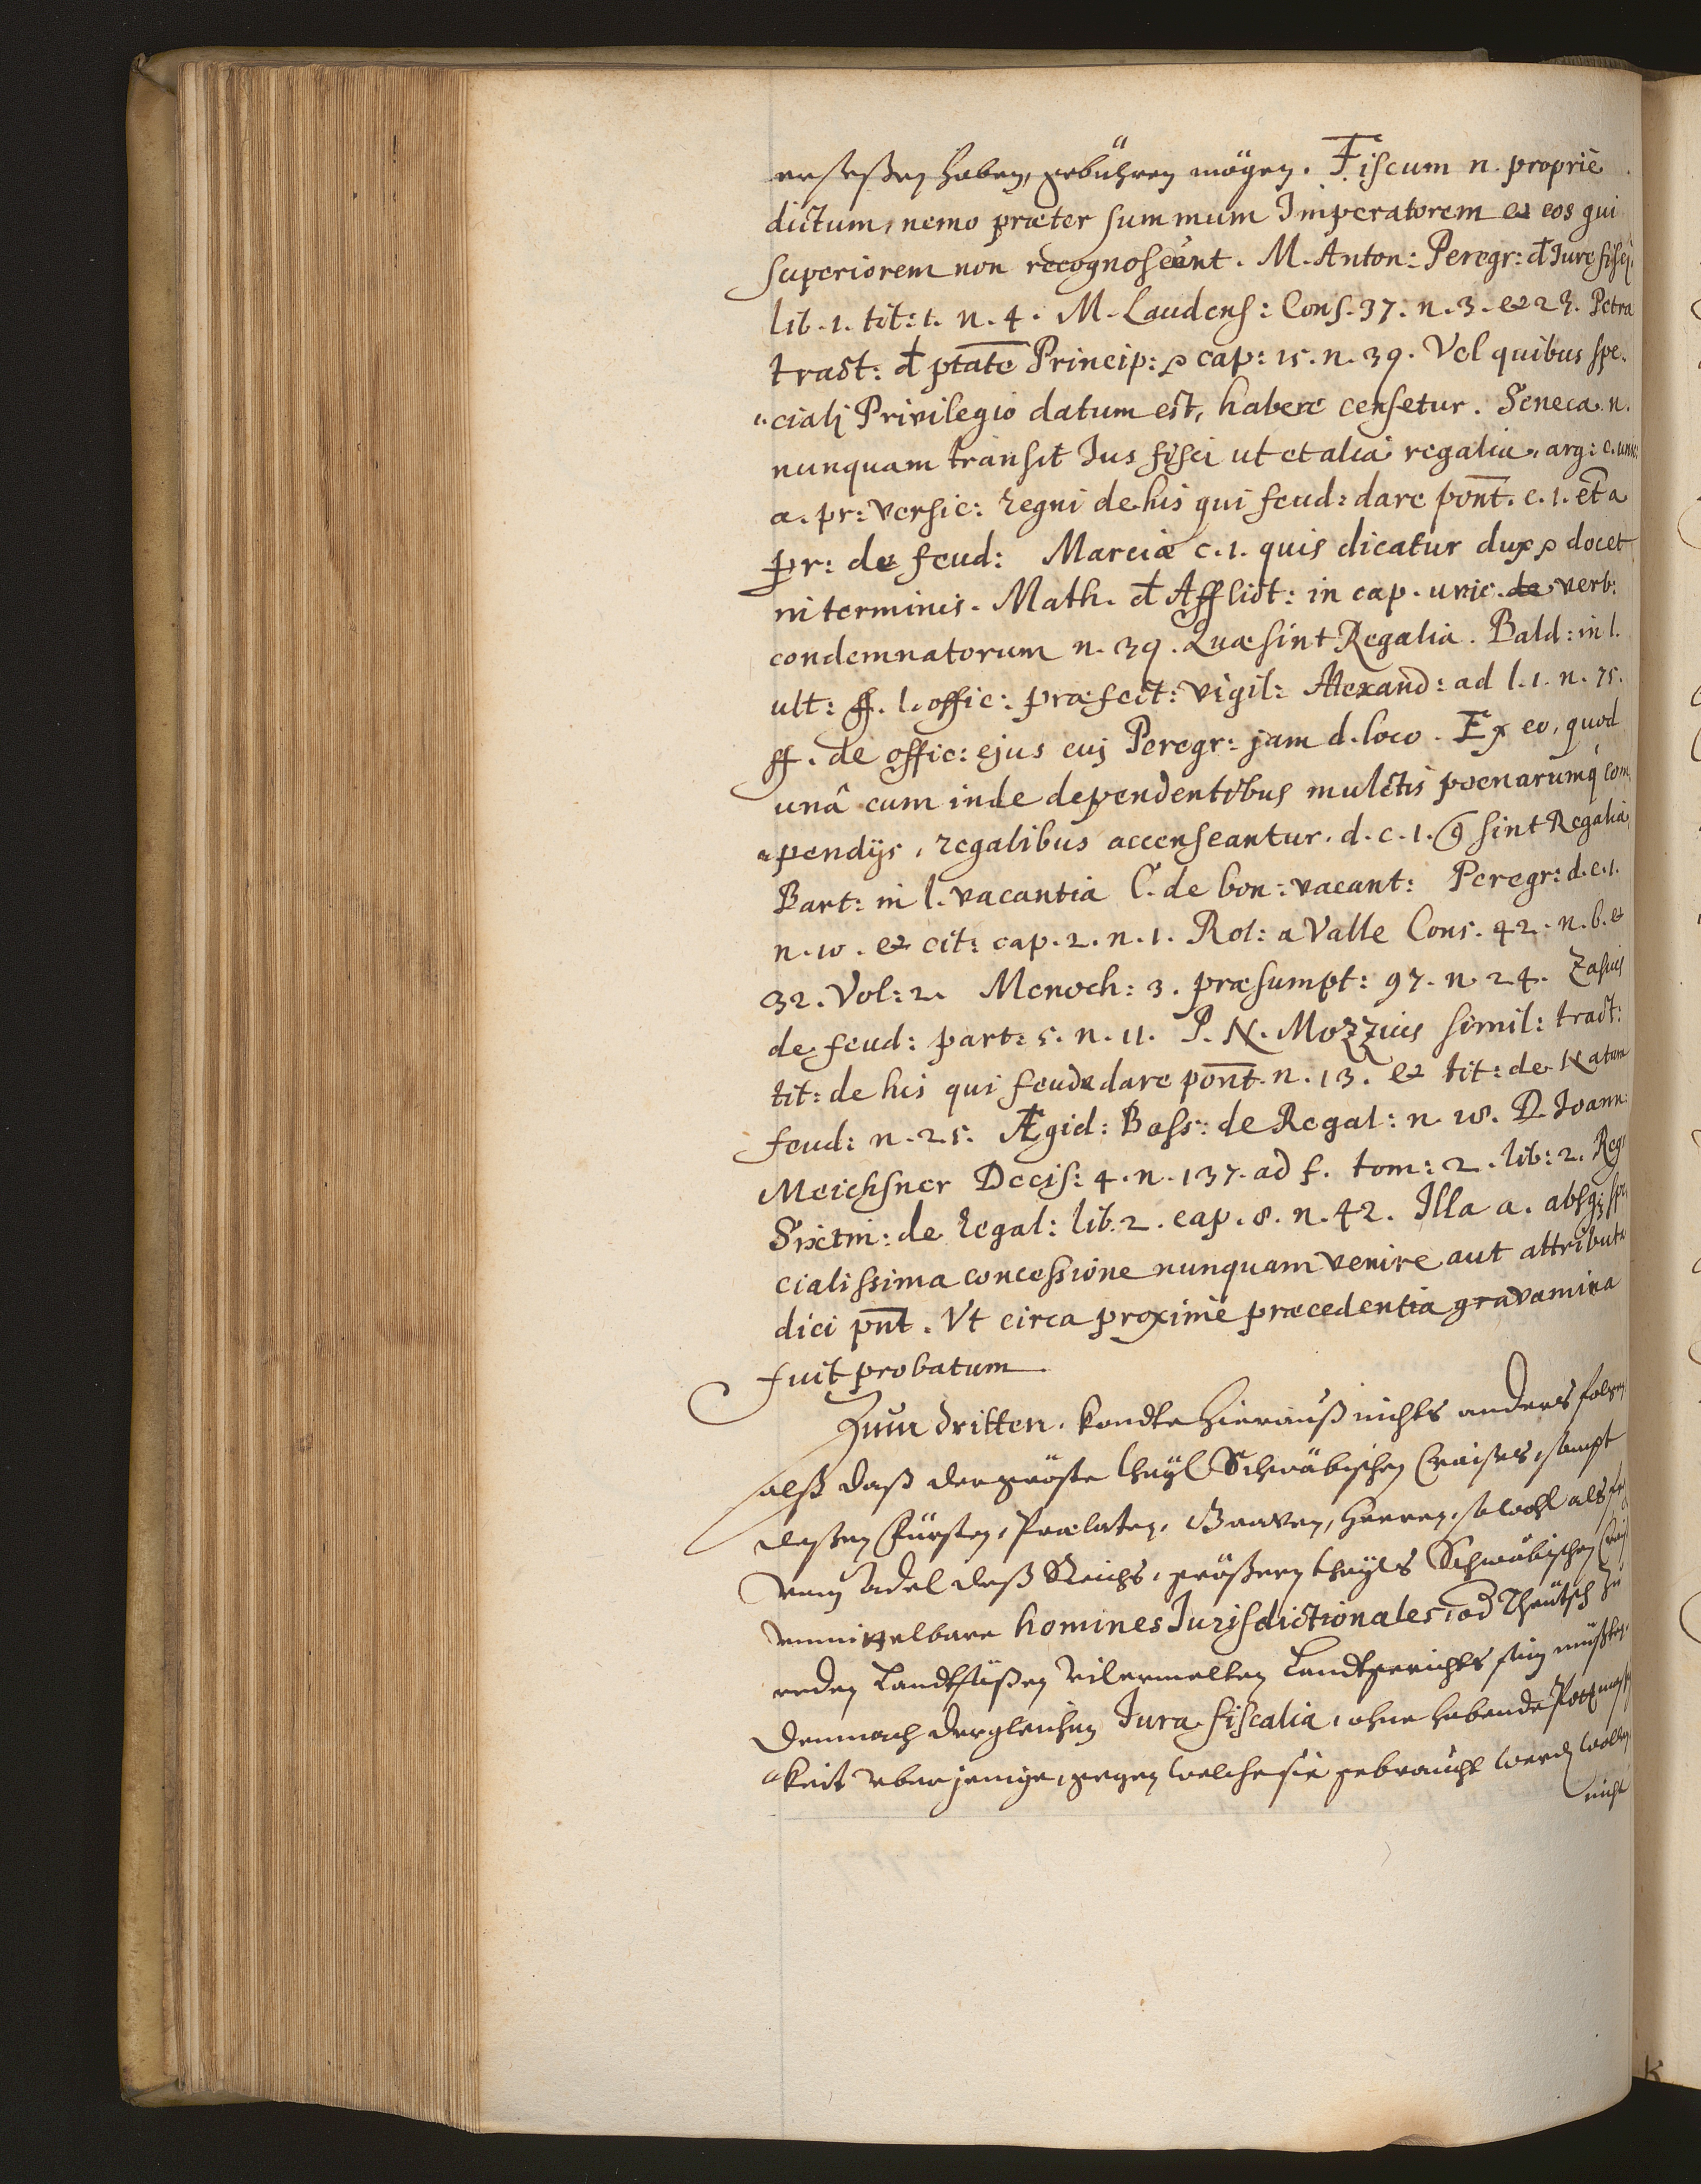 ersessen haben, gebühren mögen. Fiscum n. propriè
dictum, nemo præter summum Imperatorem et eos qui
superiorem non recognoscunt. M. Anton: Peregr: d Iure fisci,
lib. 1. tit: 1. n. 4. M. Laudens: Cons. 37. n. 3. et 23. Petra
tract: d ptate Princip: cap: 15. n. 39. Vel quibus spe-
ciali Privilegio datum est, habere censetur. n.
nunquam transit Ius fisci ut et alia regalia, arg: c. unic:
a. pr: versic: regni de his qui feud: dare pont. c. 1. et a
pr: de feud: Marciæ c. 1. quis dicatur dux docet
in terminis. Math. d Afflict: in cap. unic. de verb:
condemnatorum n. 39. Quæ sint Regalia. Bald: in l.
ult: ff. l. offic: præfect: vigil: Alexand: ad l. 1. n. 75.
ff. de offic: ejus cuj Peregr: jam d. loco. Ex eo, quod
unâ cum inde dependentibus mulctis poenarumq com
pendijs, regalibus accenseantur. d. c. 1. sint Regalia,
Bart: in l. vacantia C. de bon: vacant: Peregr: d. c. 1.
n. 10. et cit: cap. 2. n. 1. Rol: a Valle Cons. 42. n. 6. et
32. Vol: 2. Menoch: 3. præsumpt: 97. n. 24. Zasius
de feud: part: 5. n. 11. P. N. Mozzius simil: tract:
tit: de his qui feuda dare pont. n. 13. et tit: de Natura
feud: n. 25. Ægid: Boss: de Regal: n. 18. D. Ioann:
Meichsner Decis: 4. n. 137. ad f. tom: 2. lib: 2. Reg:
Sixtin: de regal: lib. 2. cap. 8. n. 42. Illa a. absq; spe
cialissima concessione nunquam venire aut attributa
dici pnt. Vt circa proximè præcedentia gravamina
fuit probatum.
Zum dritten, kondte hierauß nichts anders folgen
alß daß der gröste theyl Schwäbischen Craises, sampt
dessen Fürsten, Prælaten, Graven, Herren, sowohl als
Adel deß Reichs, grössern theyls Schwäbischen
vnmittelbare homines Iurisdictionales, od Theütsch zu
reden Landtsässen Landtgerichts sein müßten,
Demnach dergleichen Iura fiscalia, ohne habende
keit vber jenige, gegen welche sie gebraucht werd wollen
nicht